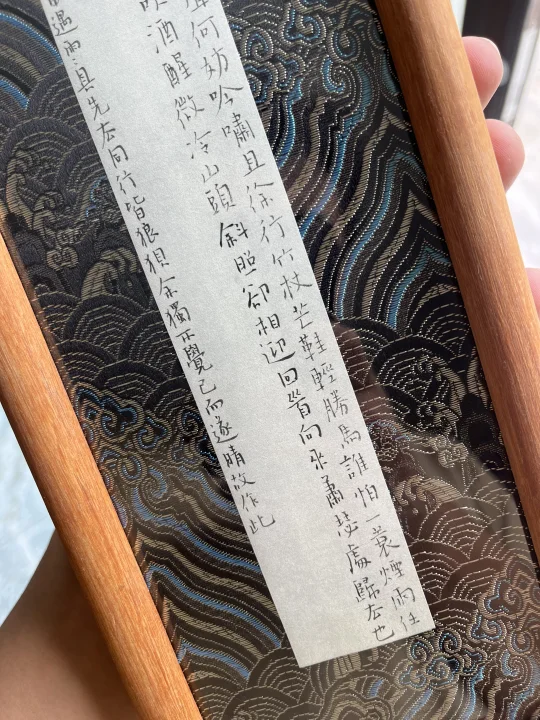 何妨吟嘯且徐行竹杖芒鞋輕勝馬誰怕一蓑煙雨任
吹酒醒微冷山頭斜照卻相迎回首向来蕭瑟處歸去也
遇雨〻具先去同行皆狼狽余獨不覺已而遂晴故作此